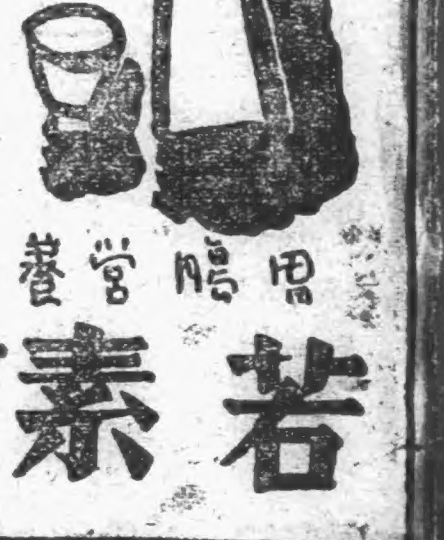 胃腸営養
若素